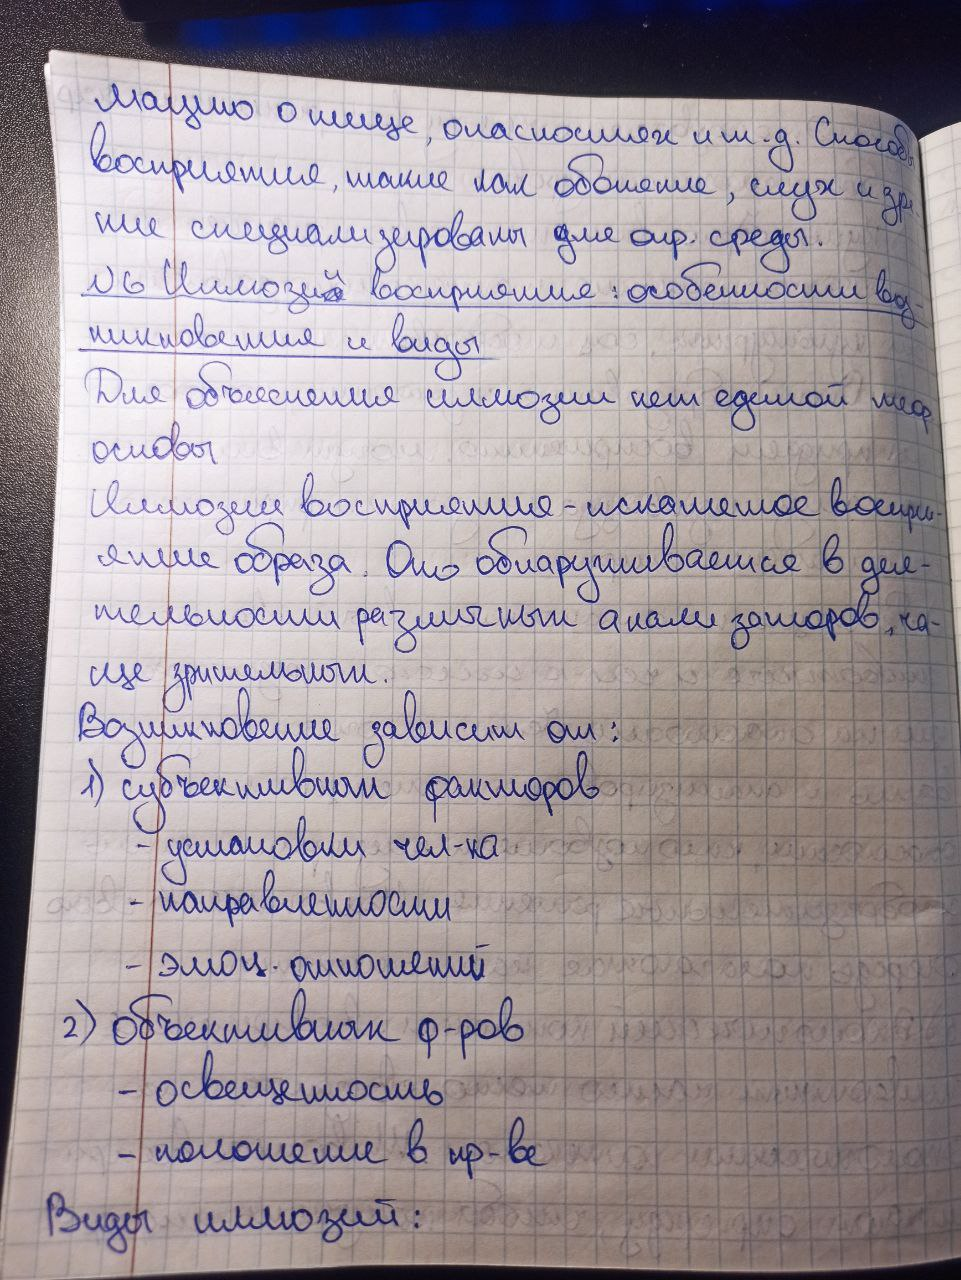 мацию о пище, опасностях и т.д. Способы
восприятия, такие как обоняние, слух и зре-
ние специализированы для опр. среды.
№6 Иллюзий восприятия: особенности воз-
никновения и виды
Для объяснения иллюзии нет единой теор.
основы
Иллюзии восприятия - искажённое воспри-
ятие образа. Оно обнаруживается в дея-
тельности различных анализаторов, ча-
ще зрительных.
Возникновение зависит от:
1) субъективных факторов
- установки чел-ка
- направленности
- эмоц. отношений
2) объективных ф-ров
- освещенность
- положение в пр-ве
Виды иллюзий: